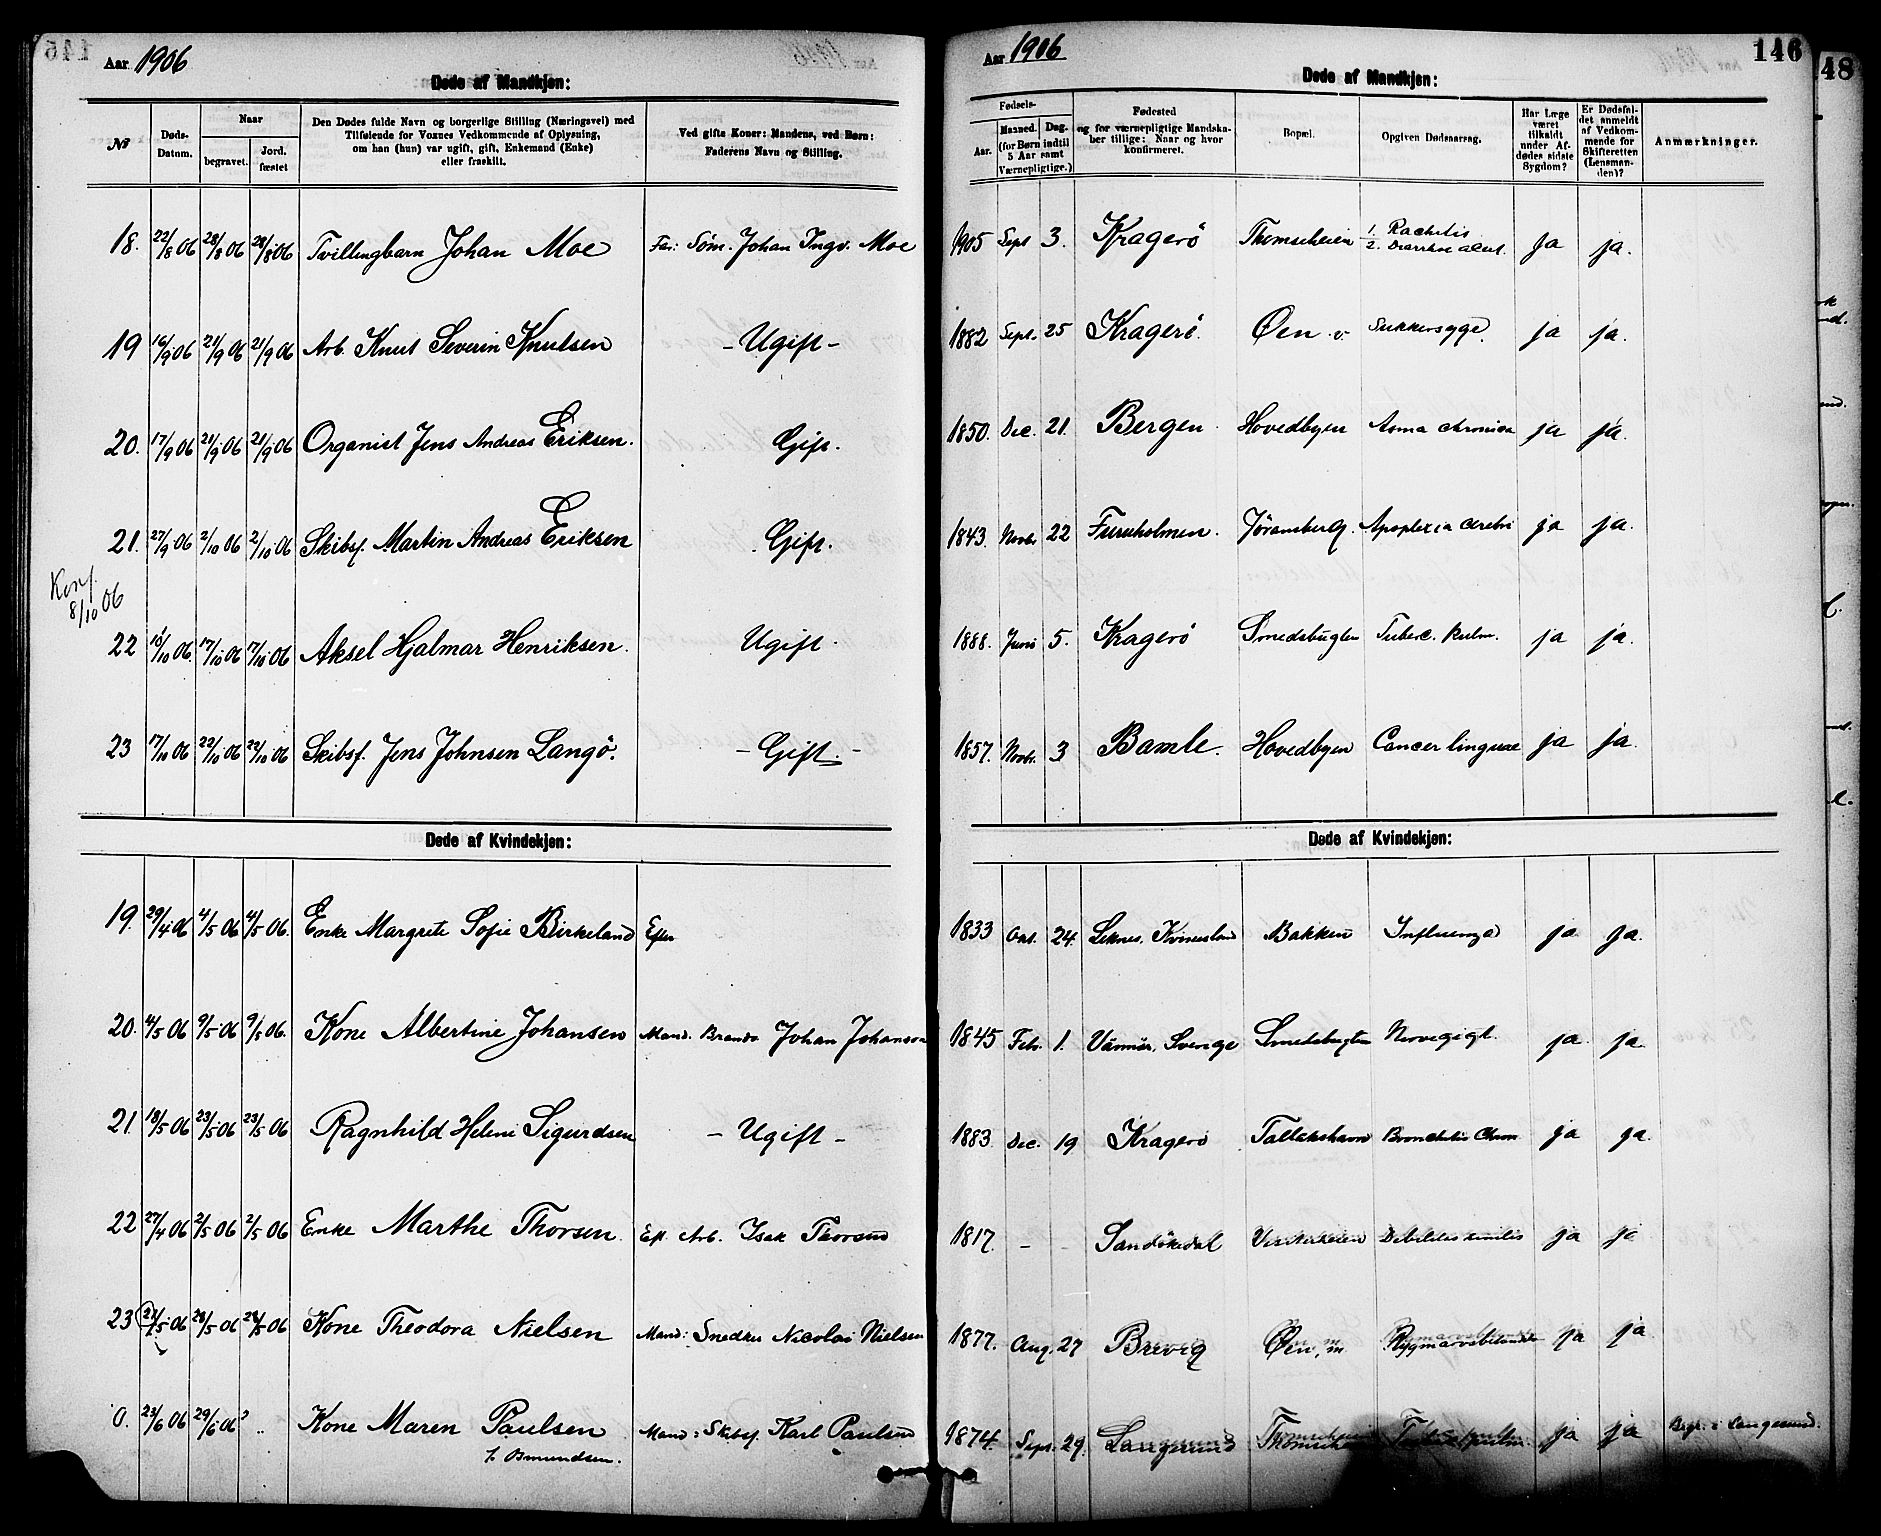 Aar 1906
Døde af Mandkjøn:
№
Døds-Datum.
Naar
begravet.
Jord-fæstet
Den Dødes fulde Navn og borgerlige Stilling (Næringsvei) med
Tilføiende for Voxnes Vedkommende af Oplysning,
om han (hun) var ugift, gift, Enkemand (Enke)
eller fraskilt.
Ved gifte Koner: Mandens, ved Børn:
Faderens Navn og Stilling.
18. 22/8 06 28/8 06 28/8 06 Tvillingbarn Johan Moe Far: Søm. Johan Ingv. Moe
19 16/9 06 21/9 06 21/9 06 Arb. Knut Severin Knutsen - Ugift -
20. 17/9 06 21/9 06 21/9 06 Organist Jens Andreas Eriksen. Gift.
21. 27/9 06 2/10 06 2/10 06 Skibsf. Martin Andreas Eriksen Gift.
Konf.
8/10 06
22 10/10 06. 17/10 06 17/10 06 Aksel Hjalmar Henriksen. Ugift.
23 17/10 06 22/10 06 22/10 06 Skibsf. Jens Johnsen Langö. - Gift. -
Døde af Kvindekjøn:
19. 29/4 06 4/5 06 4/5 06. Enke Margrete Sofie Birkeland Efter
20. 4/5 06 9/5 06 9/5 06. Kone Albertine Johansen Mand. Johan Johanson
21. 18/5 06 23/5 06 23/5 06 Ragnhild Helene Sigurdsen - Ugift -
22 27/4 06 2/5 06 2/5 06 Enke Marthe Thorsen. Eft. Arb. Isak Thorsen
23 5 06 28/5 06 28/5 06 Kone Theodora Nielsen Mand: Snedker Nicolai Nielsen
0. 23/6 06 29/6 06 " Kone Maren Paulsen Mand: Skibsf. Karl Paulsen
f. Osmundsen.
Aar 1906
146
Døde af Mandkjøn:
Fødsels-
Aar.
Maaned. Dag.
(for Børn indtil
5 Aar samt
Værnepligtige.)
Fødested
og for værnepligtige Mandska-
ber tillige: Naar og hvor
konfirmeret.
Bopæl.
Opgiven Dødsaarsag.
Har Læge
været
tilkaldt
under Af-
dødes sidste
Sygdom?
Er Dødsfal-
det anmeldt
af Vedkom-
mende for
Skifteretten
(Lensman-
den)?
Anmærkninger.
1905 Sept 3. Kragerö Thomseheien 1. Rachitis
2. Diarrhoe acut. ja ja.
1882 Sept. 25 Kragerö. Øen v. Sukkersyge. ja ja.
1850. Dec. 21. Bergen Hovedbyen Asma chronica ja ja.
1843. Novbr 22 Furuholmen. Jøransberg. Apoplexia cerebri ja ja.
1888. Juni 5. Kragerö Smedsbugten Tuberc. Pulm. ja ja.
1857. Novbr. 3 Bamle. Hovedbyen Cancer linguae ja ja.
Døde af Kvindekjøn:
1833 Oct. 24. Kvinesland Bakken Influenza ja ja.
1845 Febr. 1. Sverige Smedsbugten Nervegigt. ja ja.
1883 Dec. 19 Kragerö Tallakshavn Bronchitis Chron ja ja.
1817. - - Sandökedal Debilitas senilis ja ja
1877. Aug. 27 Brevig Øen, m. Rygmarvsbetændelse ja ja.
1874. Sept. 29. Langesund Thomseheien Tuberc. pulm. ja ja Begr. i Langesund.
48